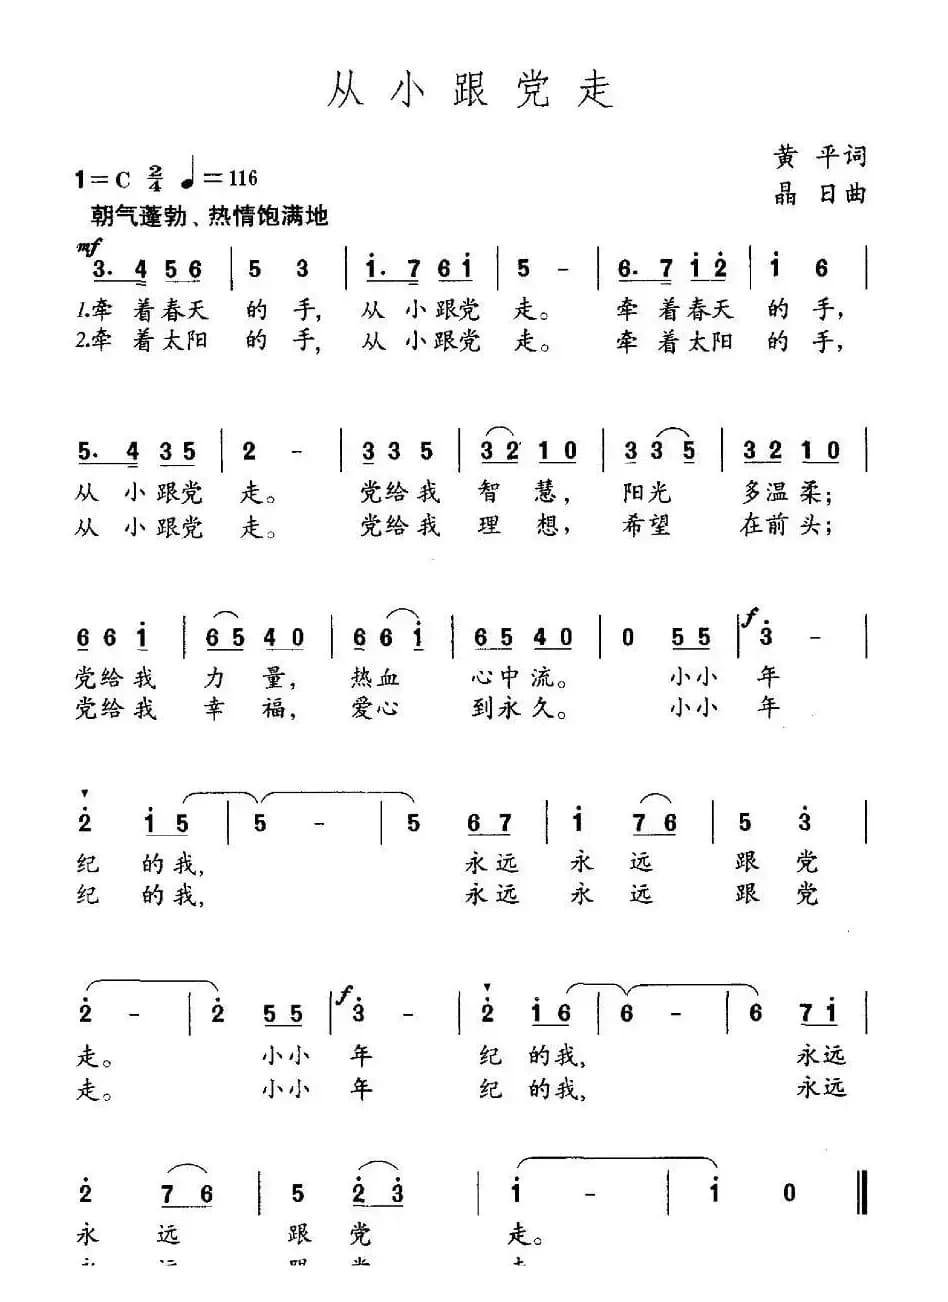 从小跟党走
黄 平词
1=C 2/4 ♩=116
晶 日曲
朝气蓬勃、热情饱满地
mf
3. 4 5 6 | 5 3 | i. 7 6 i | 5 - | 6. 7 i 2 | i 6 |
1.牵 着春天 的 手, 从 小跟党 走。 牵 着春天 的 手,
2.牵 着太阳 的 手, 从 小跟党 走。 牵 着太阳 的 手,
5. 4 3 5 | 2 - | 3 3 3 5 | 3 2 1 0 | 3 3 5 | 3 2 1 0 |
从 小跟党 走。 党给我 智 慧, 阳光 多温柔;
从 小跟党 走。 党给我 理 想, 希望 在前头;
6 6 i | 6 5 4 0 | 6 6 i | 6 5 4 0 | 0 5 5 | f 3 - |
党给我 力 量, 热血 心中流。 小小 年
党给我 幸 福, 爱心 到永久。 小小 年
2 i 5 | 5 - | 5 6 7 | i 7 6 | 5 3 |
纪 的我, 永远 永 远 跟党
纪 的我, 永远 永 远 跟党
2 - | 2 5 5 | f 3 - | 2 i 6 | 6 - | 6 7 i |
走。 小小 年 纪 的我, 永远
走。 小小 年 纪 的我, 永远
2 7 6 | 5 2 3 | i - | i 0 ‖
永 远 跟 党 走。